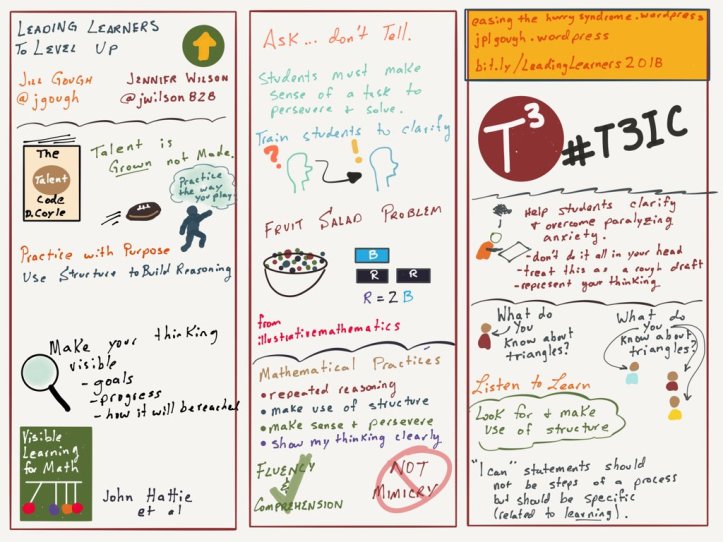 LEADING LEARNERS
TO LEVEL UP
JILL GOUGH
@jgough
JENNIFER WILSON
@jwilson828
The
Talent
Code
D. Coyle
Talent is
Grown not Made.
Practice
the way
you play.
Practice with Purpose
Use Structure to Build Reasoning
Make your thinking
visible
- goals
- progress
- how it will be reached
Visible
Learning
for Math
John Hattie
et al
Ask... don't Tell.
Students must make
sense of a task to
persevere & solve.
Train students to clarify
?
!
FRUIT SALAD PROBLEM
B
R R
R = 2 B
from
illustrativemathematics
Mathematical Practices
• repeated reasoning
• make use of structure
• make sense & persevere
• show my thinking clearly
FLUENCY
&
COMPREHENSION
NOT
MIMICRY
easing the hurry syndrome.wordpress
jplgough.wordpress
bit.ly/LeadingLearners2018
T3
#T3IC
Help students clarify
& overcome paralyzing
anxiety.
- don't do it all in your head
- treat this as a rough draft
- represent your thinking
What do
You
know about
triangles?
What do
You
know about
triangles?
Listen to Learn
Look for & make
use of structure
"I can" statements should
not be steps of a process
but should be specific
(related to learning).